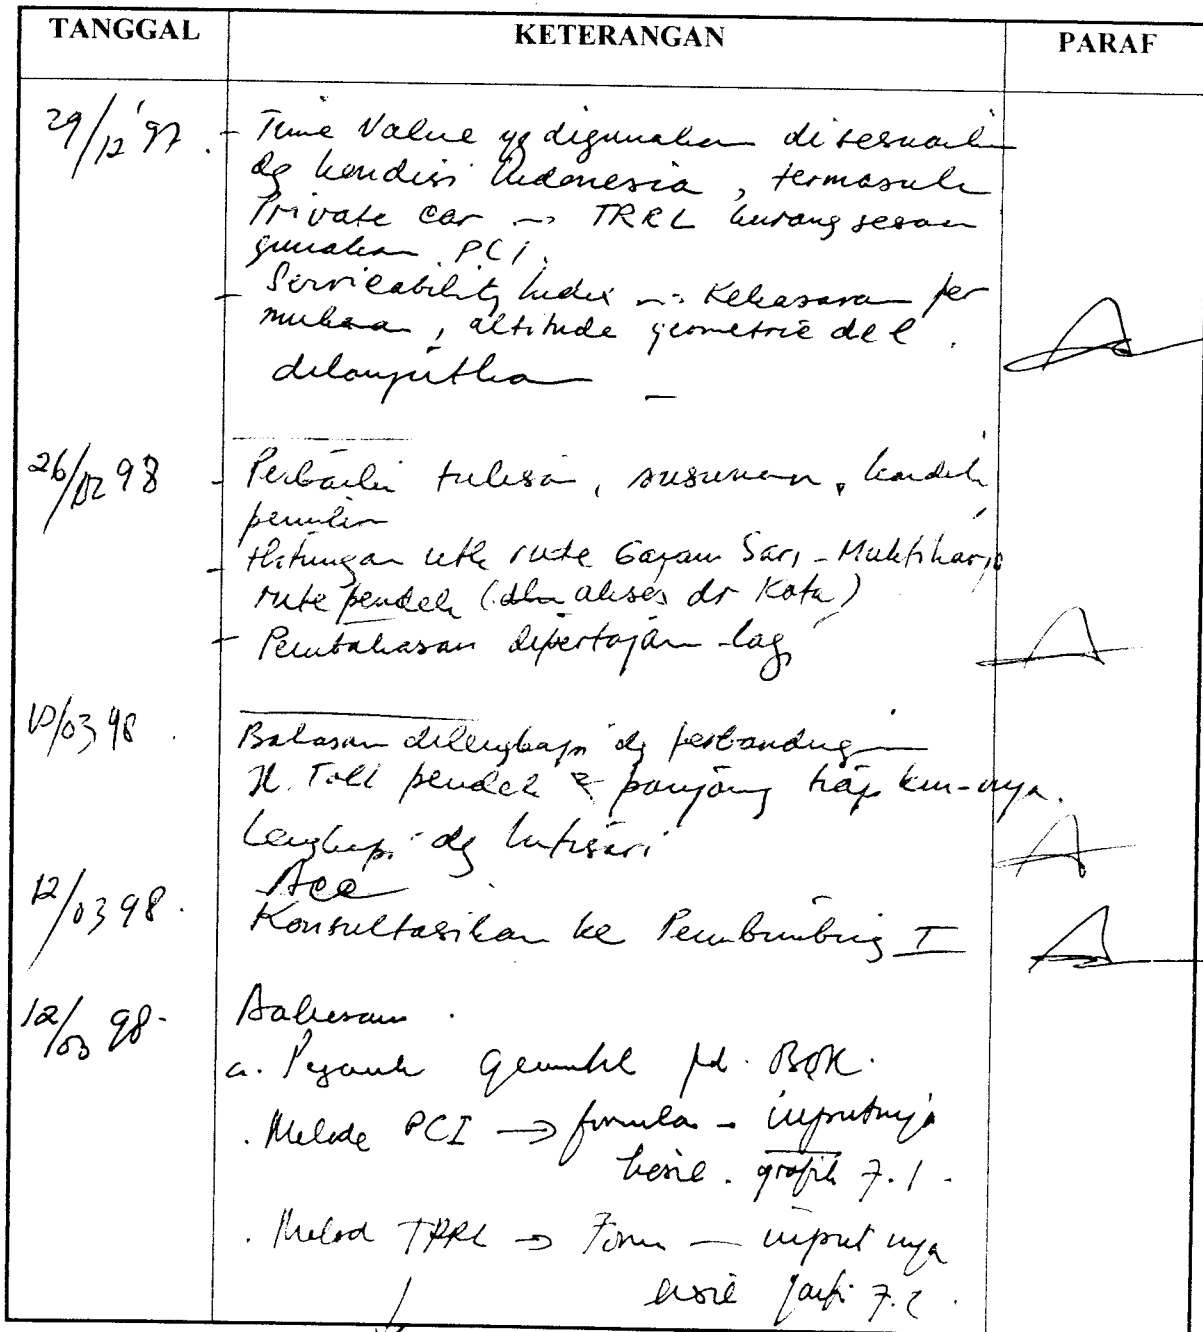 TANGGAL KETERANGAN PARAF
29/12 '97. - Time Value yg digunakan disesuaikan
dg kondisi Indonesia, termasuk
Private Car → TRRL kurang sesuai
gunakan PCI.
- Serviceability Index → Kekasaran per
mukaan, altitude geometric dll.
dilanjutkan
26/02 98 - Perbaiki tulisan, susunan, kaidah
penulisan
- Hitungan utk rute Gayam Sari - Muktiharjo
rute pendek (dlm akses dr Kota)
- Pembahasan dipertajam lagi
10/03 98. Bahasan dilengkapi dg perbandingan
Jl. Toll pendek & panjang tiap km-nya.
Lengkapi dg Intisari
12/03 98. Acc
Konsultasikan ke Pembimbing I
12/03 98. Bahasan.
a. pd. BOK.
. Metode PCI → formula - inputnya
hasil. grafik 7.1.
. Metod TRRL → Form — input nya
hasil grafik 7.2.